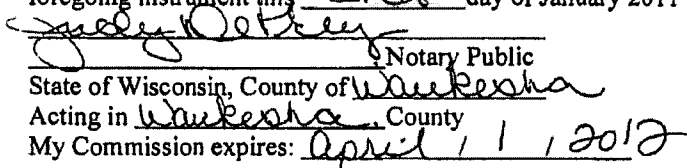 foregoing instrument this day of January 2011
Judy
Notary Public
State of Wisconsin, County of Waukesha
Acting in Waukesha, County
My Commission expires: April, 1, 2012